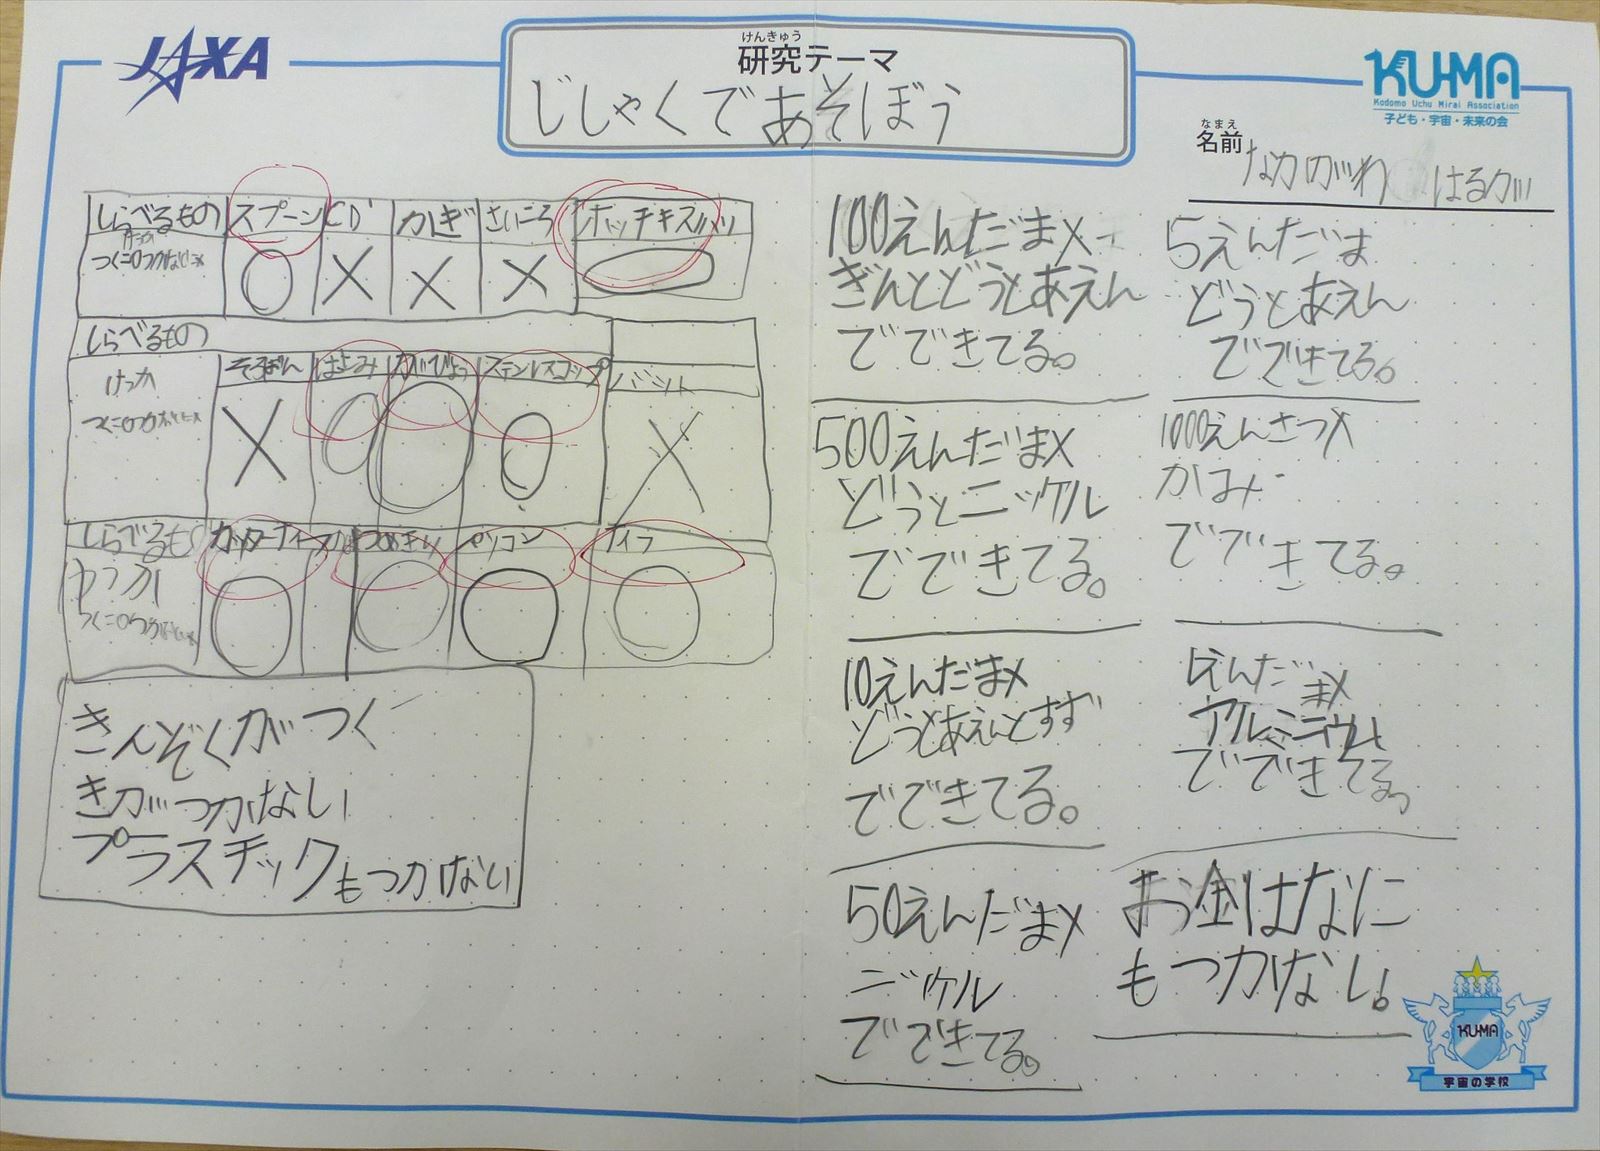 JAXA
けんきゅう
研究テーマ
じしゃくであそぼう
KU-MA
Kodomo Uchu Mirai Association
子ども・宇宙・未来の会
なまえ
名前 なかがわ はるか
しらべるもの スプーン CD かぎ さいころ ホッチキス
けっか
つく=○つかない=×
○ × × × ○
しらべるもの
そろばん はさみ がびょう ステンレスコップ バット
けっか
つく=○つかない=×
× ○ ○ ○ ×
しらべるもの カッターナイフ つめきり パソコン ナイフ
けっか
つく=○つかない=×
○ ○ ○ ○
きんぞくがつく
きがつかない
プラスチックもつかない
100えんだま×
ぎんとどうとあえん
でできてる。
500えんだま×
どうとニッケル
でできてる。
10えんだま×
どうとあえんとすず
でできてる。
50えんだま×
ニッケル
でできてる。
5えんだま
どうとあえん
でできてる。
1000えんさつ×
かみ
でできてる。
1えんだま×
アルミニウム
でできてる。
お金はなに
もつかない。
KU-MA
宇宙の学校